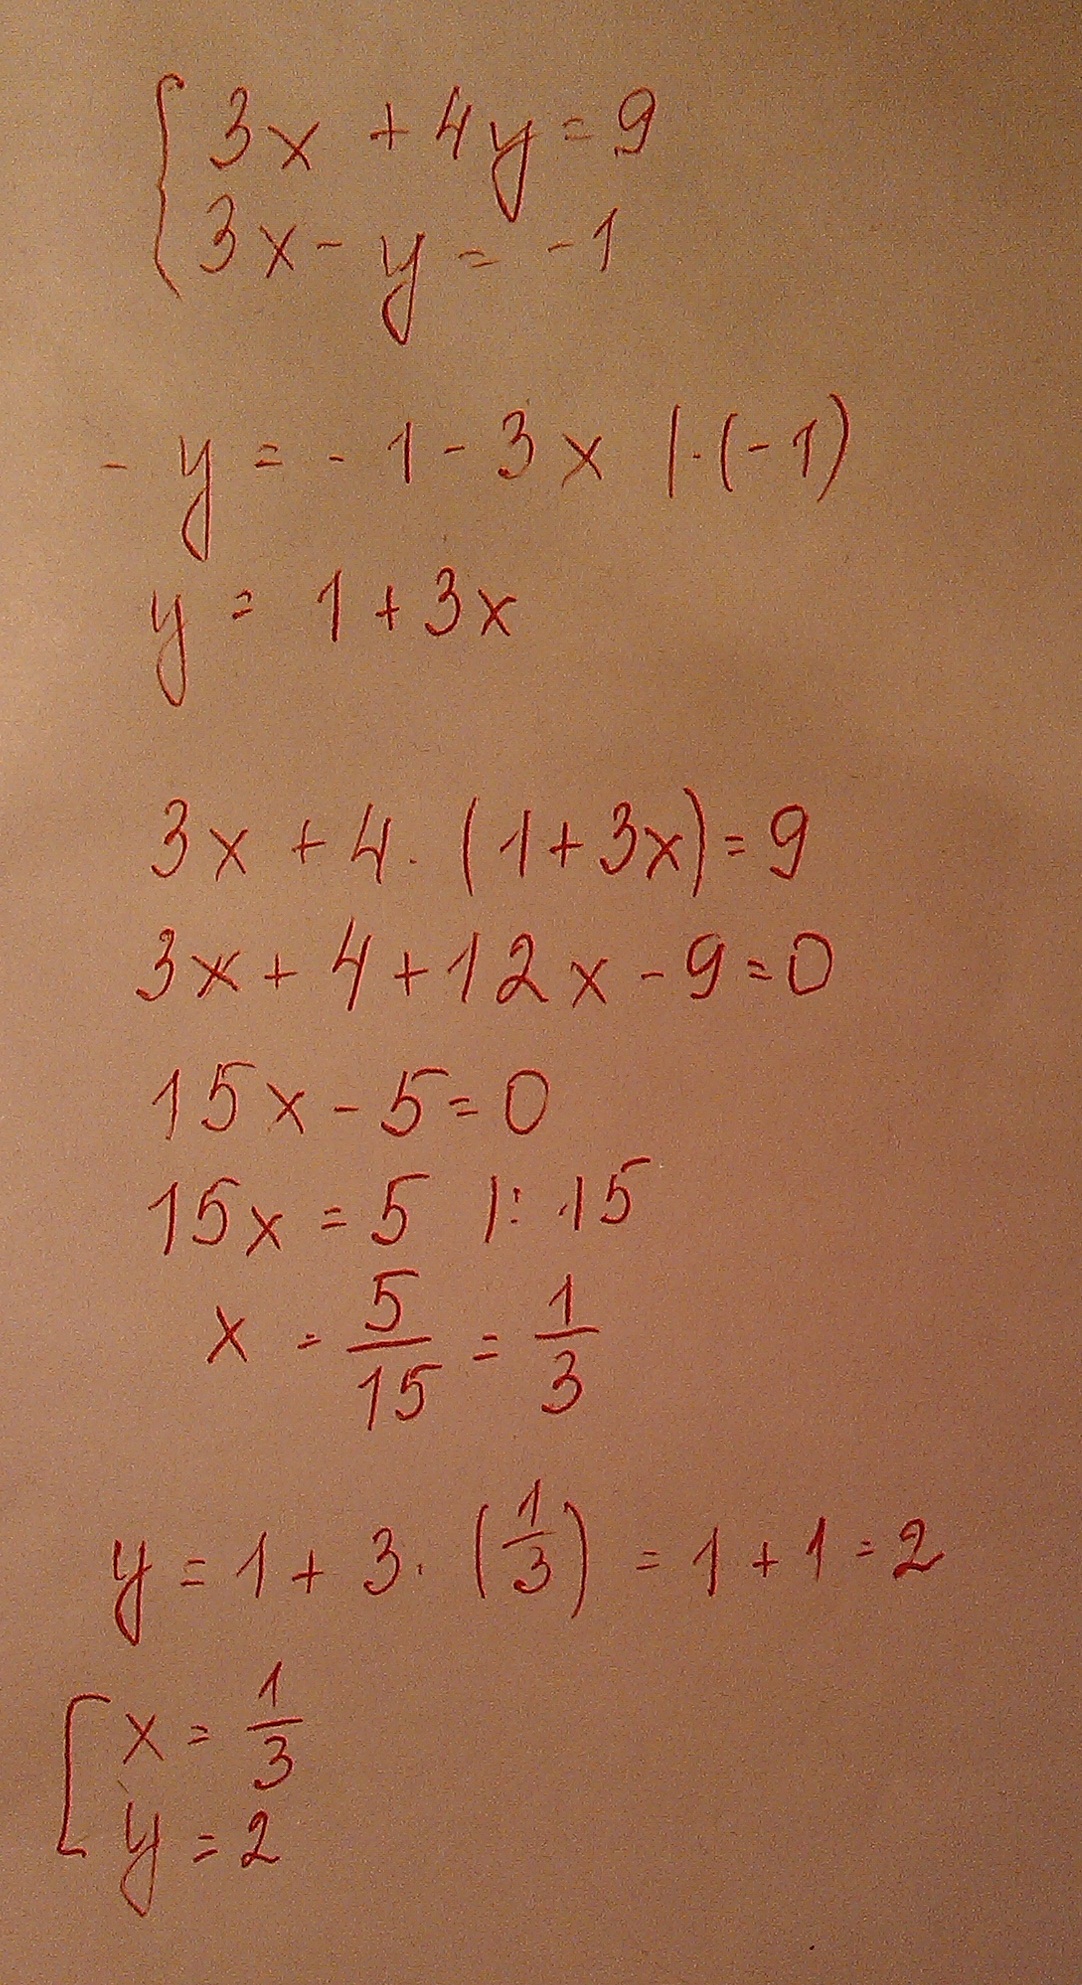 { 3x + 4y = 9
3x - y = -1
- y = - 1 - 3x | · (-1)
y = 1 + 3x
3x + 4 · (1 + 3x) = 9
3x + 4 + 12x - 9 = 0
15x - 5 = 0
15x = 5 |: 15
x = 5/15 = 1/3
y = 1 + 3 · (1/3) = 1 + 1 = 2
[ x = 1/3
y = 2